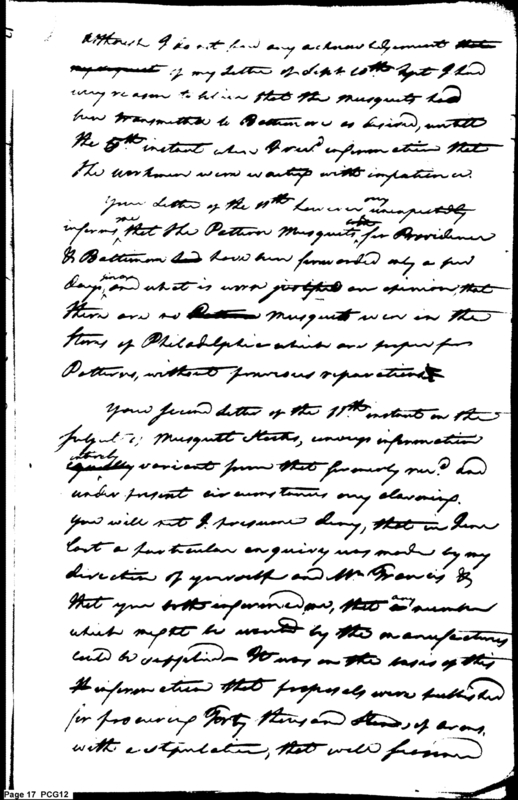 Although I do not find any acknowledgement that
my request of my Letter of Sept 10th Sept I had
every reason to believe that the musquets had
been transmitted to Baltimore as desired, untill
the 5th instant when I recd. information that
the workmen were waiting with impatience.
Your Letter of the 11th however very unexpectedly
informs me that the Pattern Musquets for Providence
& Baltimore had have been forwarded only a few
days since, and what is worse justified an opinion, that
there are no Pattern musquets even in the
Stores of Philadelphia which are proper for
Patterns, without previous reparations
Your second Letter of the 11th instant on the
subject of Musquett Stocks, conveys information
entirely equally variant from that formerly recd. and
under present circumstances very alarming.
you will not I presume deny, that in June
last a particular enquiry was made by my
direction of yourself and Mr Francis &
that you both informed me, that any number
which might be wanted by the manufacturers
could be supplied - It was on the basis of this
information that proposals were published
for procuring Forty thousand Stand, of arms,
with a stipulation, that well seasoned
Page 17 PCG12